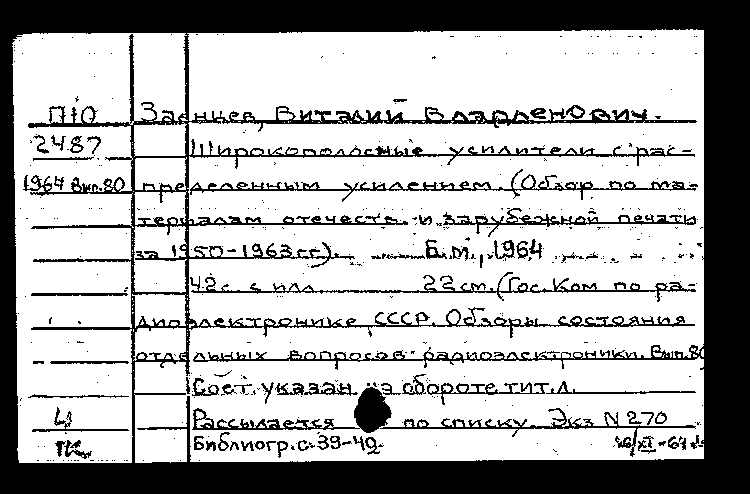 П10 Заенцев, Виталий Владленович.
2487 Широкополосные усилители с рас-
1964 Вып.80 пределенным усилением. (Обзор по ма-
териалам отечеств. и зарубежной печати
за 1950-1963 гг). Б.м., 1964
42с. с илл. 22 см. (Гос. Ком по ра-
диоэлектронике СССР. Обзоры состояния
отдельных вопросов радиоэлектроники. Вып.80
Сост. указан на обороте тит.л.
Рассылается по списку. Экз N 270
Библиогр. с. 39-42